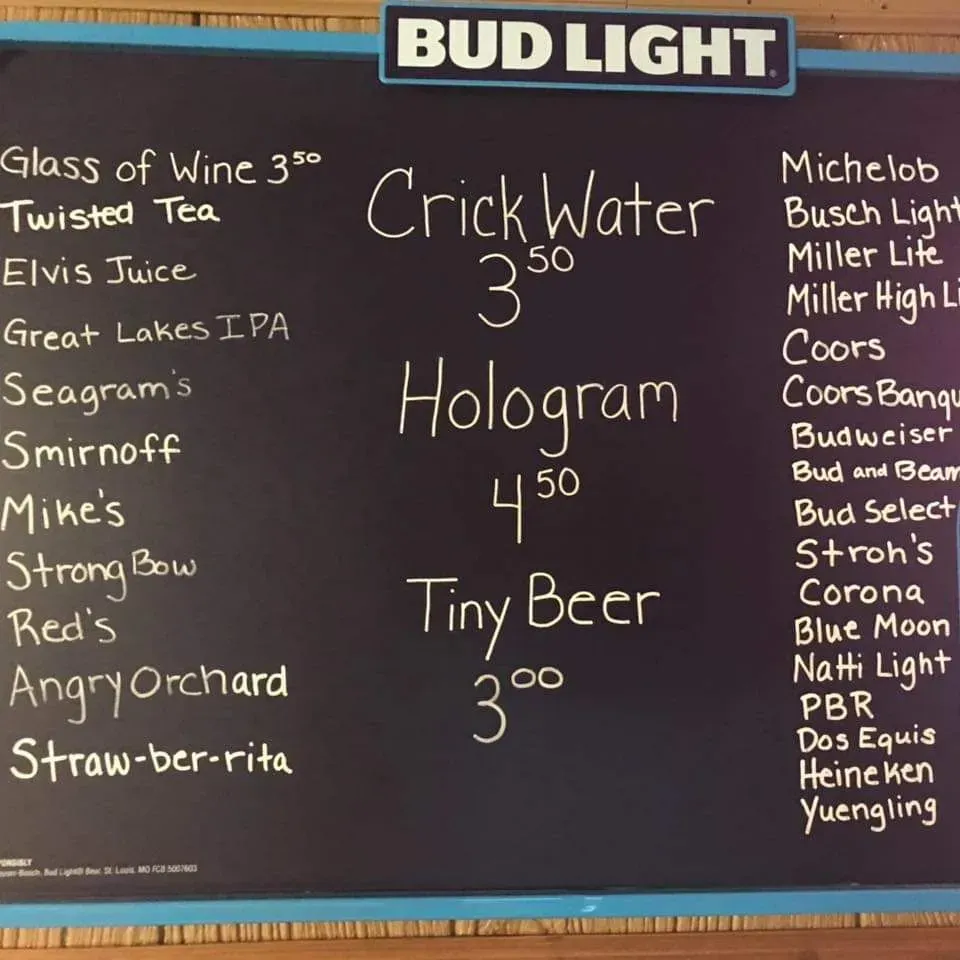 BUD LIGHT
Glass of Wine 3 50
Twisted Tea
Elvis Juice
Great Lakes IPA
Seagram's
Smirnoff
Mike's
Strong Bow
Red's
Angry Orchard
Straw-ber-rita
Crick Water
3 50
Hologram
4 50
Tiny Beer
3 00
Michelob
Busch Light
Miller Lite
Miller High Li
Coors
Coors Banqu
Budweiser
Bud and Beam
Bud Select
Stroh's
Corona
Blue Moon
Natti Light
PBR
Dos Equis
Heineken
Yuengling
Bud Light® Beer, St. Louis, MO